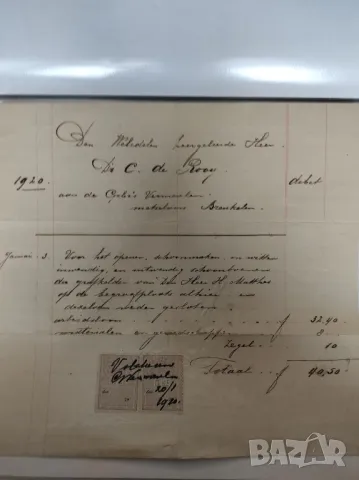 Den Weledelen Zeergeleerden Heer
Dr. C. de Rooy
1920
debet
aan de Gebrs Vermeulen
metselaars Breukelen
Januari 3. Voor het openen, schoonmaken, en witten
inwendig, en uitwendig schoonboenen
die grafkelder van den Heer H. Matthes
op de begraafplaats alhier en
dezelve weder gesloten
arbeidsloon f 32,40
materialen en gereedschappen 8
Zegel 10
Totaal f 40,50
Voldaan
20/1
1920.
bazar.bg